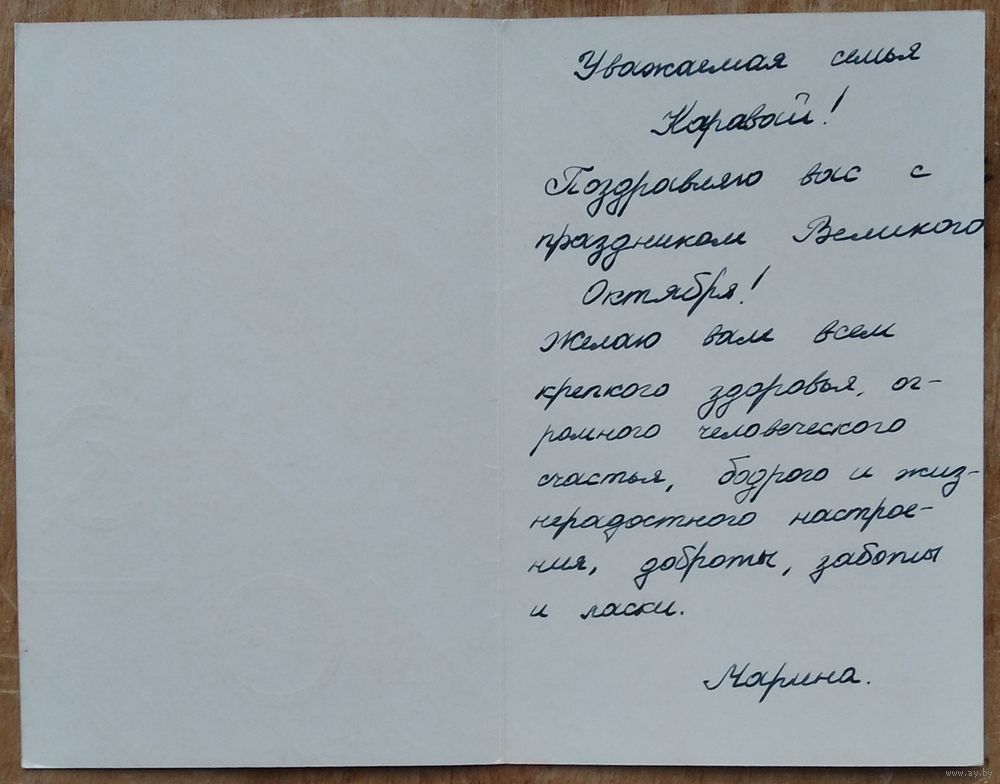 Уважаемая семья
Каравай!
Поздравляю вас с
праздником Великого
Октября!
Желаю вам всем
крепкого здоровья, ог-
ромного человеческого
счастья, бодрого и жиз-
нерадостного настрое-
ния, доброты, заботы
и ласки.
Марина.
www.ay.by